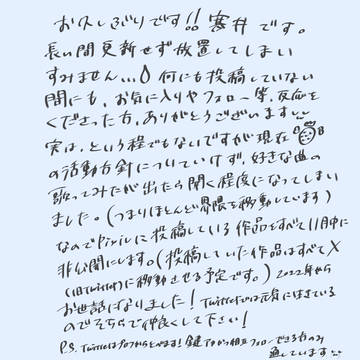 お久しぶりです!! 寒井です。
長い間更新せず放置してしまい
すみません... 何にも投稿していない
間にも、お気に入りやフォロー等、反応を
くださった方、ありがとうございます
実は、という程でもないですが現在
の活動方針についていけず、好きな曲の
歌ってみたが出たら聞く程度になってしまい
ました。(つまりほとんど界隈を移動しています)
なのでpixivに投稿している作品をすべて11月中に
非公開にします。(投稿していた作品はすべてX
(旧Twitter)に移動させる予定です。) 2022年から
お世話になりました! Twitterでは元気に生きている
のでそちらで仲良くして下さい!
P.S. Twitterはプロフからとべます! 鍵アカウント相互フォローできる方のみ
通しています